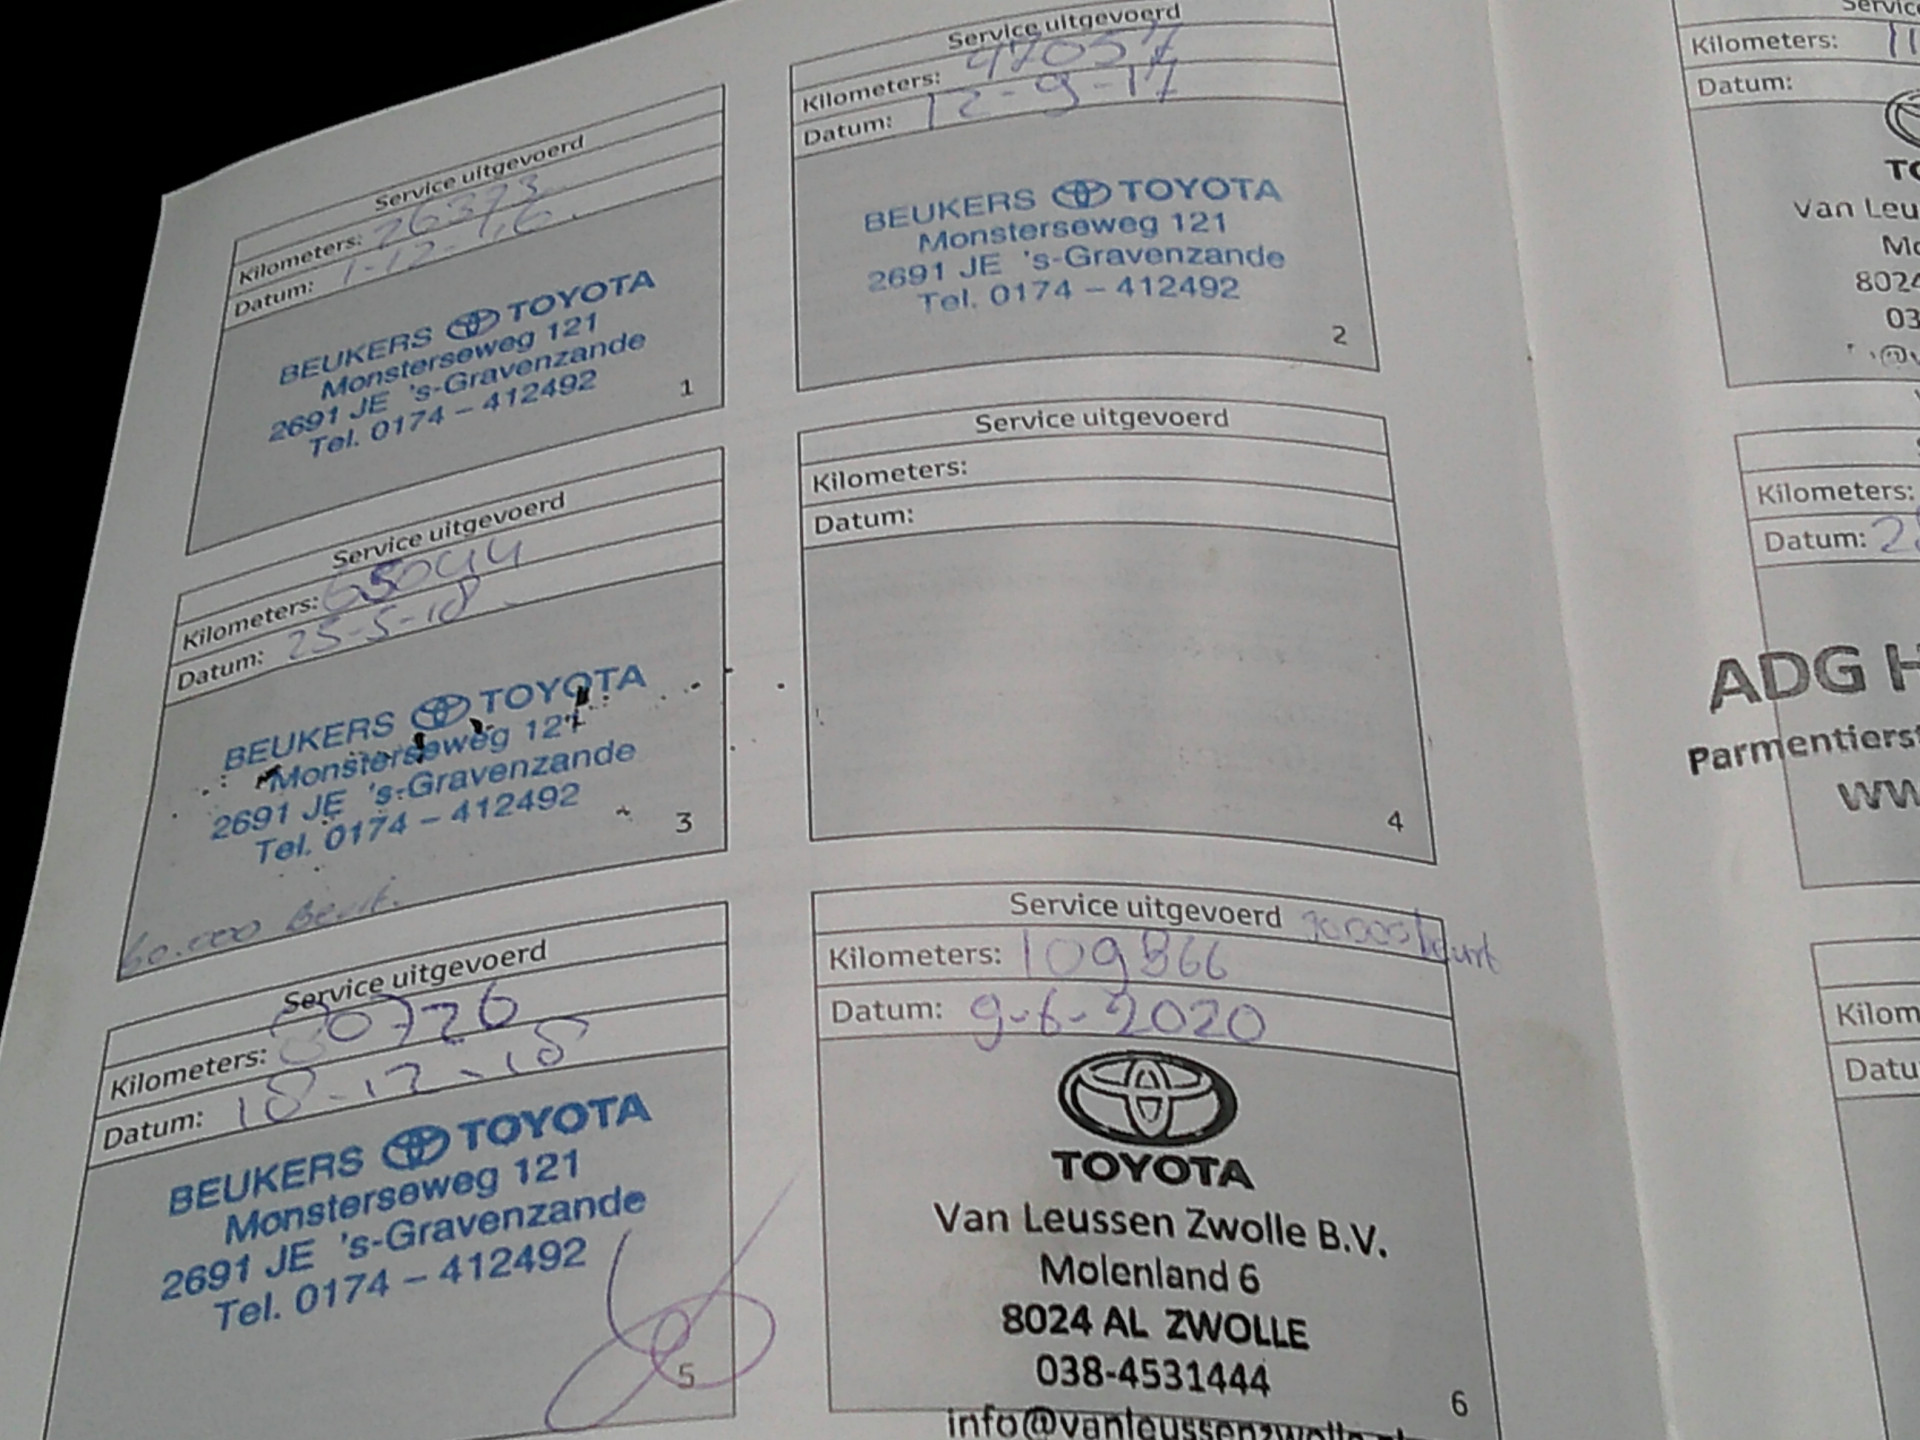 Service uitgevoerd
Kilometers: 26373
Datum: 1-12-16.
BEUKERS TOYOTA
Monsterseweg 121
2691 JE 's-Gravenzande
Tel. 0174 – 412492
1
Service uitgevoerd
Kilometers: 47057
Datum: 12-9-17
BEUKERS TOYOTA
Monsterseweg 121
2691 JE 's-Gravenzande
Tel. 0174 – 412492
2
Service uitgevoerd
Kilometers: 65044
Datum: 25-5-18
BEUKERS TOYOTA
Monsterseweg 121
2691 JE 's-Gravenzande
Tel. 0174 – 412492
3
60.000 Beurt.
Service uitgevoerd
Kilometers:
Datum:
4
Service uitgevoerd
Kilometers: 80726
Datum: 18-12-18
BEUKERS TOYOTA
Monsterseweg 121
2691 JE 's-Gravenzande
Tel. 0174 – 412492
5
Service uitgevoerd beurt
Kilometers: 109866
Datum: 9-6-2020
TOYOTA
Van Leussen Zwolle B.V.
Molenland 6
8024 AL ZWOLLE
038-4531444
info@vanleussenzwolle
6
Kilometers: 11
Datum:
TO
Van Leu
Mo
8024
03
Kilometers:
Datum: 2
ADG H
Parmentierst
WW
Kilom
Datu